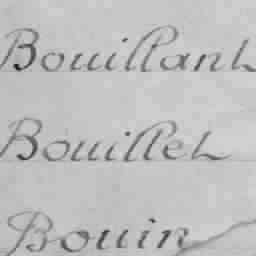 Bouillant
Bouillet
Bouin